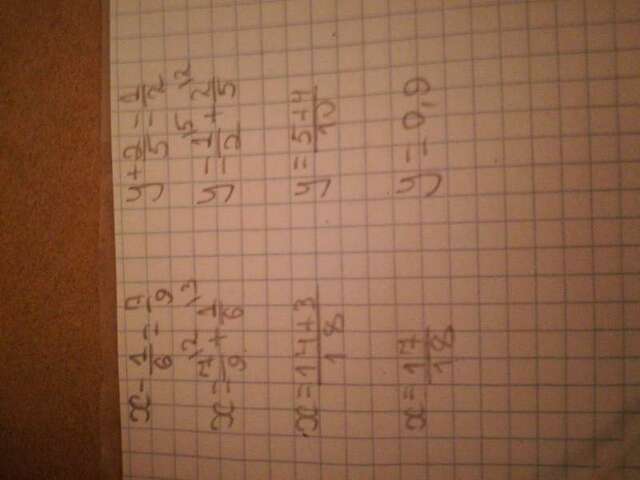 x - 1/6 = 7/9
x = 7\2/9 + 1\3/6
x = 14+3/18
x = 17/18
y + 2/5 = 1/2
y = 1\5/2 + 2\2/5
y = 5+4/10
y = 0,9